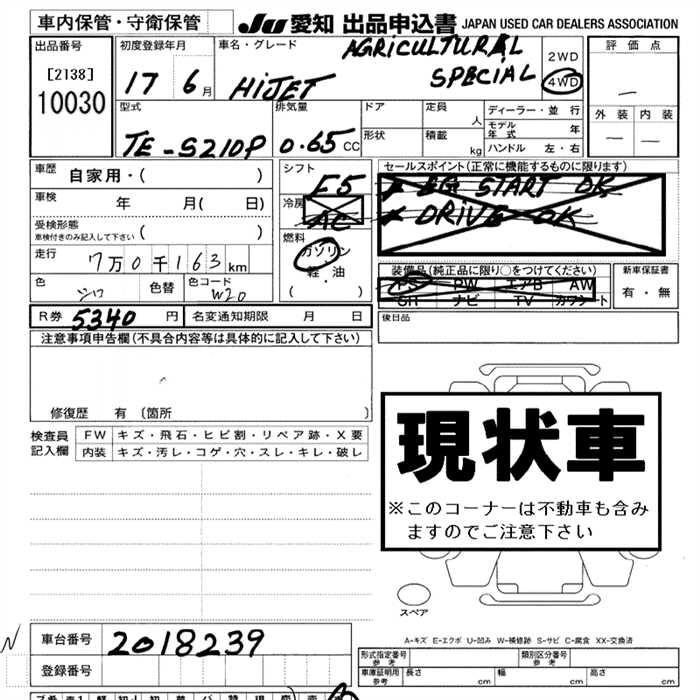 車内保管・守衛保管 JU 愛知 出品申込書 JAPAN USED CAR DEALERS ASSOCIATION
出品番号 初度登録年月 車名・グレード AGRICULTURAL 評価点
[2138] 17 6月 HiJET SPECIAL 2WD 4WD
10030
型式 排気量 ドア 定員 人 ディーラー・並行 外装 内装
モデル年式 年
TE-S210P 0.65cc 形状 積載 kg ハンドル 左・右
車歴 自家用・( ) シフト F5 セールスポイント(正常に機能するものに限ります)
車検 年 月( 日) 冷房 AC EG START OK
受検形態 DRIVE OK
車検付きのみ記入して下さい ( ) 燃料
走行 7万0千163km ガソリン
軽・油
( )
装備品(純正品に限り○をつけてください) 新車保証書
PS PW エアB AW 有・無
SR ナビ TV カワシート
色 シロ 色替 色コード W20
R券 5340円 名変通知期限 月 日 後日品
注意事項申告欄(不具合内容等は具体的に記入して下さい)
修復歴 有 〔箇所 〕
検査員記入欄 FW キズ・飛石・ヒビ割・リペア跡・X要
内装 キズ・汚レ・コゲ・穴・スレ・キレ・破レ
現状車
※このコーナーは不動車も含み
ますのでご注意下さい
スペア
A-キズ E-エクボ U-凹み W-補修跡 S-サビ C-腐食 XX-交換済
N 車台番号 2018239
登録番号
形式指定番号 参考 類別区分番号 参考
車庫証明用 参考 長さ cm 幅 cm 高さ cm